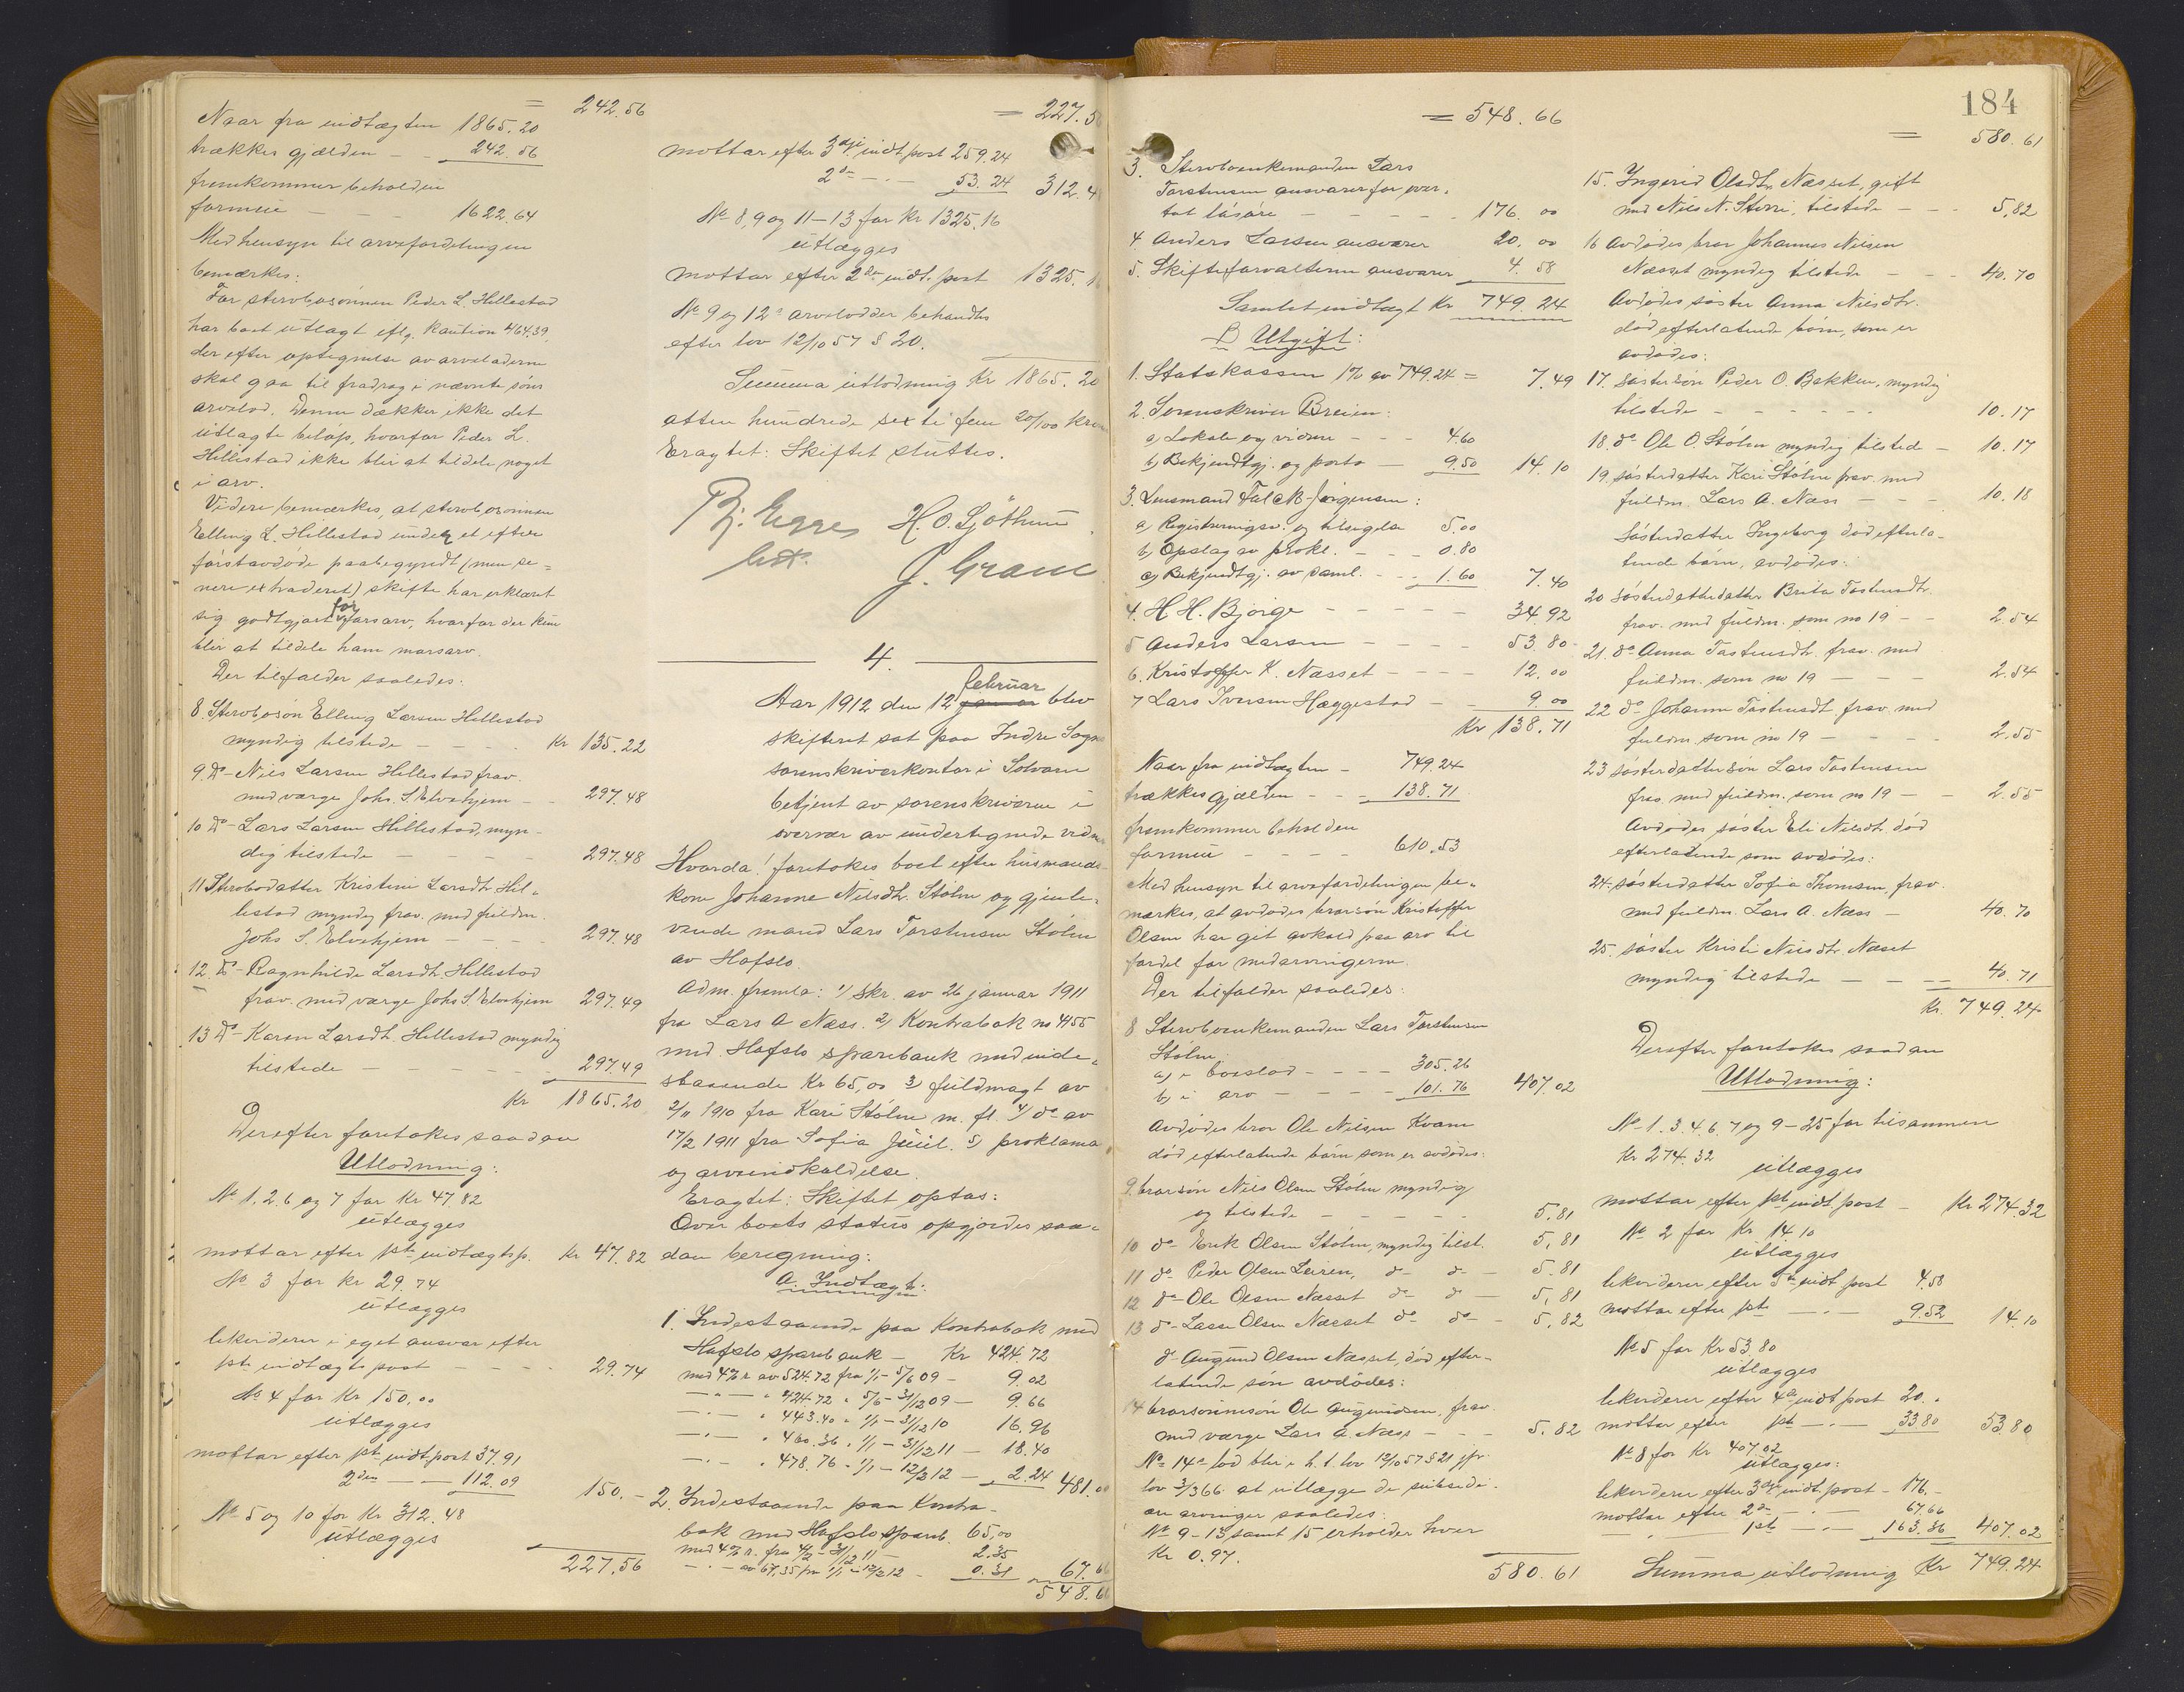 = 242.56
Naar fra indtægten 1865.20
trækkes gjælden - - 242.56
fremkommer beholden
formue - - - 1622.64
Med hensyn til arvefordelingen
bemerkes:
For sterbosønnen Peder L. Hillestad
har boet utlagt eflg. kaution 464.39,
der efter optegnelse av arveladeren
skal gaa til fradrag i nævnte søns
arvelod. Denne dækker ikke det
utlagte beløp, hvorfor Peder L.
Hillestad ikke blir at tildele noget
i arv.
Videre bemerkes, at sterbosønnen
Elling L. Hillestad under et efter
førstavdøde paabegyndt (men se=
nere extraderet) skifte har erklæret
sig godtgjort for farsarv, hvorfor der kun
blir at tildele ham morsarv.
Der tilfalder saaledes:
8. Sterbosøn Elling Larsen Hillestad
myndig tilstede - - - - Kr 135.22
9. Do- Nils Larsen Hillestad frav.
med værge Johs. S. Elvehjem - - 297.48
10 Do- Lars Larsen Hillestad, myn-
dig tilstede - - - - 297.48
11 Sterbodatter Kristine Larsdtr. Hil-
lestad myndig frav. med fuldm.
Johs S. Elvehjem - - - - 297.48
12 Do- Ragnhilde Larsdtr. Hillestad
frav. med værge Johs S. Elvehjem 297.49
13 Do- Karen Larsdtr. Hillestad myndig
tilstede - - - - - 297.49
Kr 1865.20
Derefter foretokes saadan
Utlodning:
No 1, 2. 6 og 7 for Kr 47.82
utlægges
mottar efter 1ste indtægtsp. Kr 47.82
No. 3 for Kr 29.74
utlægges
likviderer i eget ansvar efter
1ste indtægts post - - - - 29.74
No 4 for Kr 150,00
utlægges
mottar efter 1ste indt. post 37.91
2den - - 112.09 150.-
No 5 og 10 for Kr 312.48
utlægges
227.56
= 227.5
mottar efter 3dje indt. post 259.24
2do - . - 53.24 312.4
No 8, 9 og 11-13 for Kr 1325.16
utlægges
mottar efter 2den indt. post 1325.1
No 9 og 12s arvelodder behandles
efter lov 12/10 57 § 20.
Summa utlodning Kr 1865.20
atten hundrede sexti fem 20/100 kro
Eragtet: Skiftet sluttes.
H. O. Sjøthun
J. Gram
4.
februar
Aar 1912 den 12 januar blev
skifteret sat paa Indre Sogn
sorenskriverkontor i Solvorn
betjent av sorenskriveren i
overvær av undertegnede vidne
Hvorda! foretokes boet efter husmands-
kone Johanne Nilsdtr. Stølen og gjenle-
vende mand Lars Torstensen Stølen
av Hafslo.
Adm. fremla: 1) skr. av 26 januar 1911
fra Lars A Næss. 2) Kontrabok no 4155
med Hafslo sparebank med inde-
staaende Kr 65,00 3) fuldmagt av
2/11 1910 fra Kari Stølen m. fl. 4) do av
17/2 1911 fra Sofia Juul. 5) proklama
og arveindkaldelse.
Eragtet: Skiftet optas:
Over boets status opgjordes saa-
dan beregning:
A. Indtægt:
1. Indestaaende paa Kontrabok med
Hafslo sparebank - Kr 424.72
med 4% r. av 524.72 fra 1/1 - 5/6 09 - 9.02
- " - " 424.72 " 5/6 - 31/12 09 - 9.66
- " - " 443.40 " 1/1 - 31/12 10 16.96
- " - " 460.36 " 1/1 - 31/12 11 - 18.40
- " - " 478.76 " 1/1 - 12/2 12 - 2.24 481.00
2. Indestaaende paa Kontra-
bok med Hafslo spareb. 65,00
med 4% r. fra 4/2 - 31/12 11 - 2.35
- " - av 67,35 fra 1/1 - 12/2 12 - 0.31 67.66
548.66
184
= 548.66
3. Sterboenkemanden Lars
Torstensen ansvarer for over-
tat løsøre - - - - - 176.00
4. Anders Larsen ansvarer 20.00
5. Skifteforvalteren ansvarer 4.58
Samlet indtægt Kr 749.24
B Utgift:
1. Statskassen 1% av 749.24 = 7.49
2. Sorenskriver Breien:
a) Lokale og vidner - - - 4.60
b) Bekjendtgj. og porto - 9.50 14.10
3. Lensmand Falck-Jørgensen:
a) Registreringsv. og tilsigelse 5.00
b) Opslag av prokl. - - - 0.80
c) Bekjendtgj. av saml. - - 1.60 7.40
4. H. H. Bjørge - - - - - 34.92
5 Anders Larsen - - - - 53.80
6. Kristoffer K. Næsset - - - - 12.00
7 Lars Iversen Hæggestad - - 9.00
Kr 138.71
Naar fra indtægten - 749.24
trækkes gjælden - - - 138.71
fremkommer beholden
formue - - - - 610.53
Med hensyn til arvefordelingen be-
mærkes, at avdødes brorsøn Kristoffer
Olsen har git avkald paa arv til
fordel for medarvingerne.
Der tilfalder saaledes:
8 Sterboenkemanden Lars Torstensen
Stølen
a) i boeslod - - - - 305.26
b) i arv - - - - 101.76 407.02
Avdødes bror Ole Nilsen Kvam
død efterlatende børn som er avdødes:
9. brorsøn Nils Olsen Stølen myndig
og tilstede - - - - - 5.81
10 do- Erik Olsen Stølen, myndig tilst. 5.81
11 do- Peder Olsen Leiren, do- do- 5.81
12 do- Ole Olsen Næsset do- do- 5.81
13 do- Lasse Olsen Næsset do- do- 5.82
do- Augund Olsen Næsset, død efter-
latende søn avdødes:
14 brorsønnesøn Ole Augundsen, frav.
med værge Lars A Næss - - - 5.82
No 14s lod blir i h. t. lov 12/10 57 § 21 jfr.
lov 3/3 66 at utlægge de subsidi-
ære arvinger saaledes:
No 9-13 samt 15 erholder hver
Kr 0.97.
580.61
= 580.61
15. Ingerid Olsdtr. Næsset, gift
med Nils N. Sterri, tilstede - - - 5,82
16 Avdødes bror Johannes Nilsen
Næsset myndig tilstede - - - 40.70
Avdødes søster Anna Nilsdtr.
død efterlatende børn, som er
avdødes:
17. søstersøn Peder O. Bakken, myndig
tilstede - - - - - - 10.17
18. do Ole O Stølen myndig tilstede - 10.17
19. søsterdatter Kari Stølen frav. med
fuldm. Lars A. Næss - - - 10.18
Søsterdatter Ingeborg død efterla-
tende børn, avdødes:
20 søsterdatterdatter Brita Tostensdtr.
frav. med fuldm. som no 19 - - 2.54
21. do- Anna Tostensdtr. frav. med
fuldm. som no 19 - - - 2.54
22 do- Johanne Tostensdt. frav. med
fuldm. som no 19 - - - - 2.55
23 søsterdattersøn Lars Tostensen
frav. med fuldm. som no 19 - - 2.55
Avdødes søster Eli Nilsdtr. død
efterlatende som avdødes:
24. søsterdatter Sofia Thomsen, frav.
med fuldm. Lars A. Næss - 40.70
25. søster Kristi Nilsdtr. Næset
myndig tilstede - - - - 40.71
Kr. 749.24
Derefter foretokes saadan
Utlodning:
No 1. 3. 4. 6. 7 og 9-25 for tilsammen
Kr 274.32
utlægges
mottar efter 1ste indt. post - Kr 274.32
No 2 for Kr 14.10
utlægges
likviderer efter 5te indt. post 4.58
mottar efter 1ste - . - 9.52 14.10
No 5 for Kr 53,80
utlægges
likviderer efter 4de indt. post 20.-
mottar efter 1ste - . - 33.80 53.80
No 8 for Kr 407.02
utlægges:
likviderer efter 3dje indt. post - 176.-
mottar efter 2den - . - 67.66
- " - 1ste - . - 163.36 407.02
Summa utlodning Kr 749.24